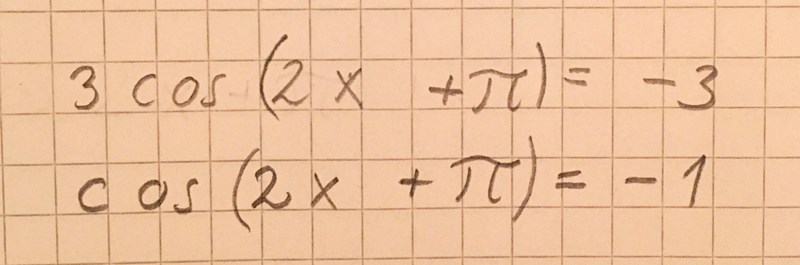 3 cos (2x + π) = -3
cos (2x + π) = -1